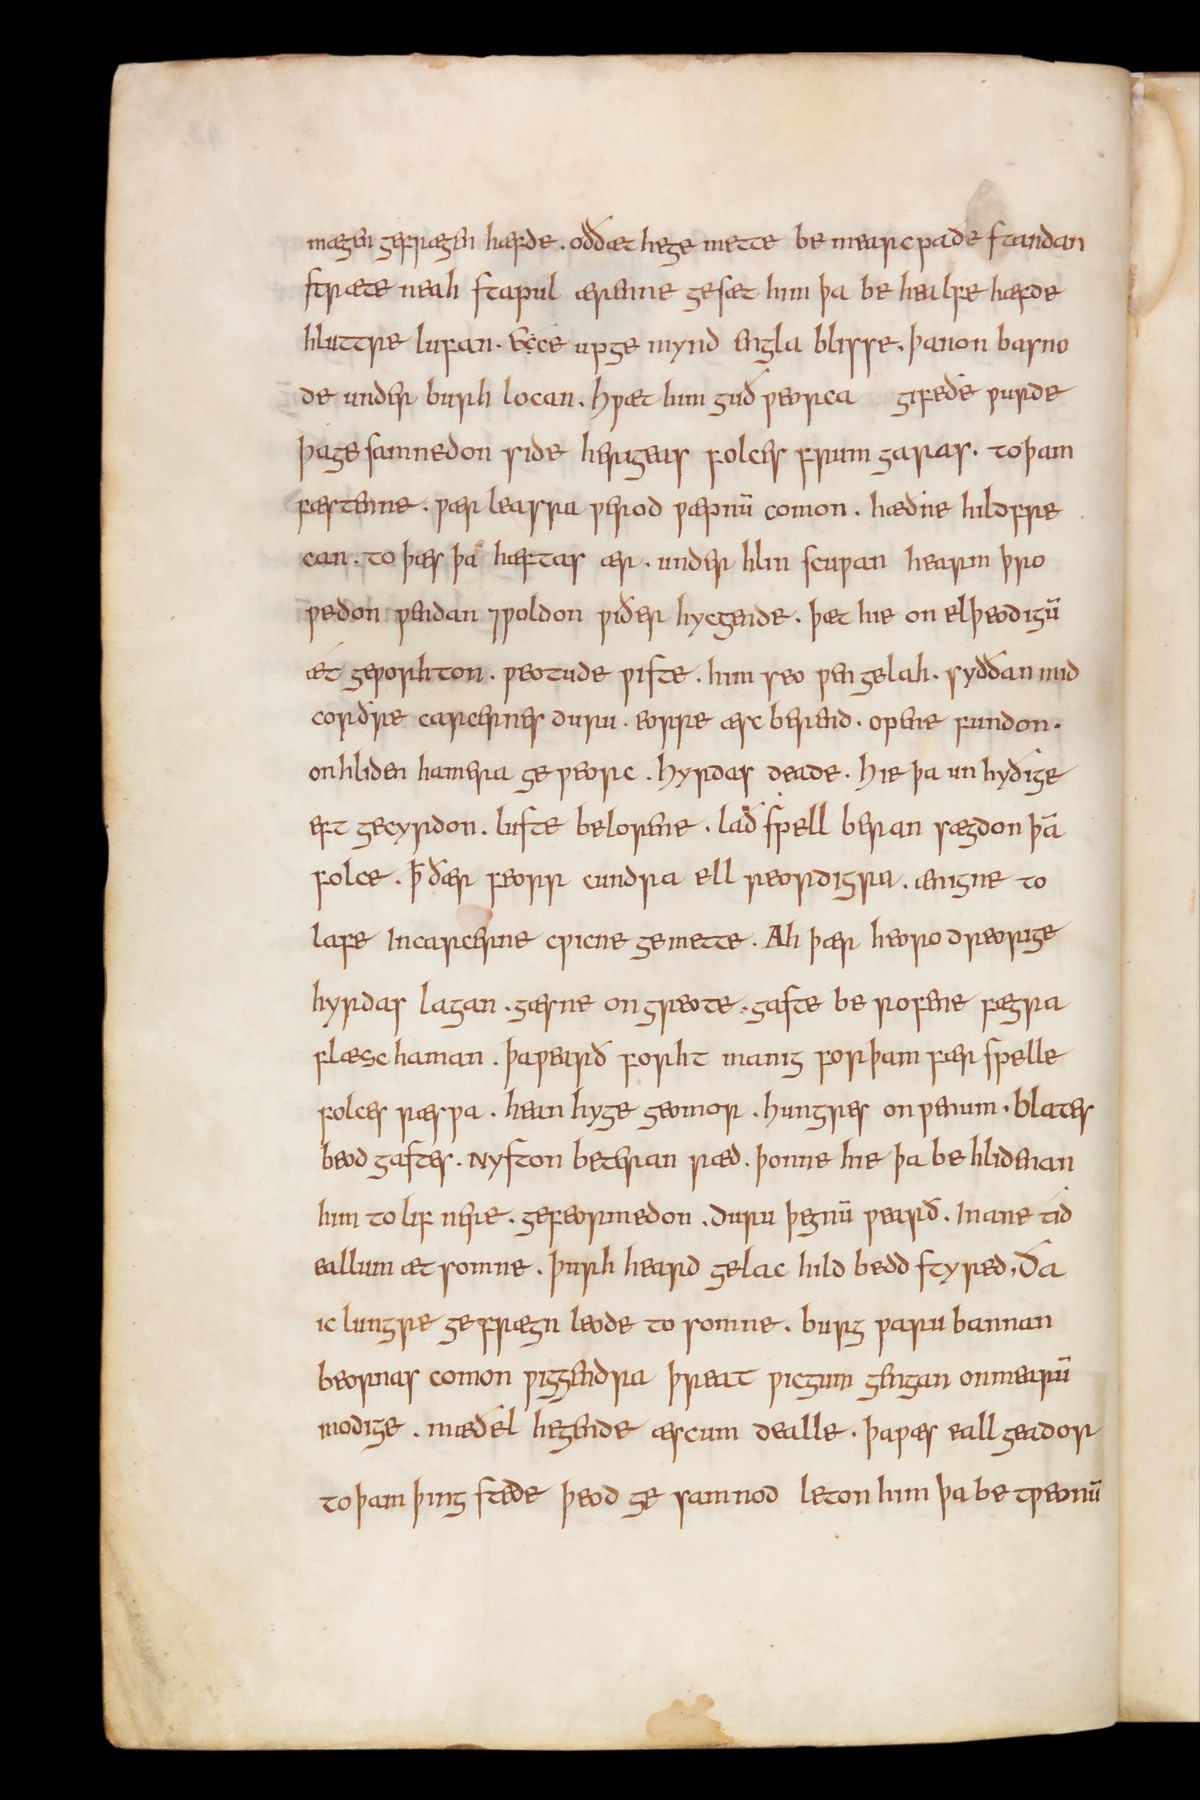 mægen gefrægen hæfde . oððæt hege mette be mearcpaðe standan
stræte neah stapul ærenne gesæt him þa be healfe hæfde
hluttre lufan . ece upge mynd engla blisse . þanon basno
de under burh locan . hƿæt him guð ƿeorca gifeðe ƿurde
þage samnedon side herigeas folces frum garas . toþam
fæstenne . ƿær leasra ƿerod ƿæpnū comon . hæðne hildfre
can . to þæs þa hæftas ær . under hlin scuƿan hearm þro
ƿedon ƿendan ⁊ƿoldon ƿiðer hycgende . þæt hie on elþeodigū
ǽt geƿorhton . ƿeotude ƿiste . him seo ƿen gelah . syððan mid
corðre carcernes duru . eorre æsc berend . opene fundon .
onhliden hamera ge ƿeorc . hyrdas deade . hie þa un hyðige
eft gecyrdon . luste belorene . lað spell beran sægdon þā
folce . ꝥ ðær feorr cundra ell reordigra . ænigne to
lafe Incarcerne cƿicne gemette . Ah þær heoro dreorige
hyrdas lagan . gæsne on greote . gaste be rofene fægra
flæsc haman . þaƿearð forht manig forþam fær spelle
folces ræsƿa . hean hyge geomor . hungres on ƿenum . blates
beod gastes . Nyston beteran ræd . þonne hie þa be hlidenan
him to lif nere . gefeormedon . duru þegnū ƿearð . In ane tíd
eallum æt somne . þurh heard gelac hild bedd styred . Ða
ic lungre ge frægn leode to somne . burg ƿaru bannan
beornas comon ƿiggendra þreat ƿicgum gengan onmearū
modige . mæðel hegende æscum dealle . þaƿæs eall geador
to þam þing stede þeod ge samnod leton him þa be tƿeonū